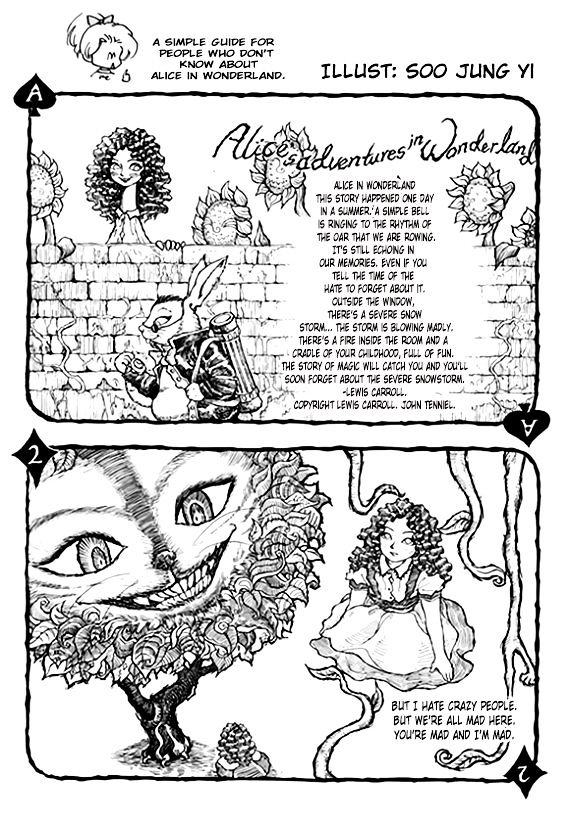 A SIMPLE GUIDE FOR
PEOPLE WHO DON'T
KNOW ABOUT
ALICE IN WONDERLAND.
ILLUST: SOO JUNG YI
A
Alice's adventures in Wonderland
ALICE IN WONDERLAND
THIS STORY HAPPENED ONE DAY
IN A SUMMER. A SIMPLE BELL
IS RINGING TO THE RHYTHM OF
THE OAR THAT WE ARE ROWING.
IT'S STILL ECHOING IN
OUR MEMORIES. EVEN IF YOU
TELL THE TIME OF THE
HATE TO FORGET ABOUT IT.
OUTSIDE THE WINDOW,
THERE'S A SEVERE SNOW
STORM... THE STORM IS BLOWING MADLY.
THERE'S A FIRE INSIDE THE ROOM AND A
CRADLE OF YOUR CHILDHOOD, FULL OF FUN.
THE STORY OF MAGIC WILL CATCH YOU AND YOU'LL
SOON FORGET ABOUT THE SEVERE SNOWSTORM.
-LEWIS CARROLL.
COPYRIGHT LEWIS CARROLL. JOHN TENNIEL.
A
2
BUT I HATE CRAZY PEOPLE.
BUT WE'RE ALL MAD HERE.
YOU'RE MAD AND I'M MAD.
2